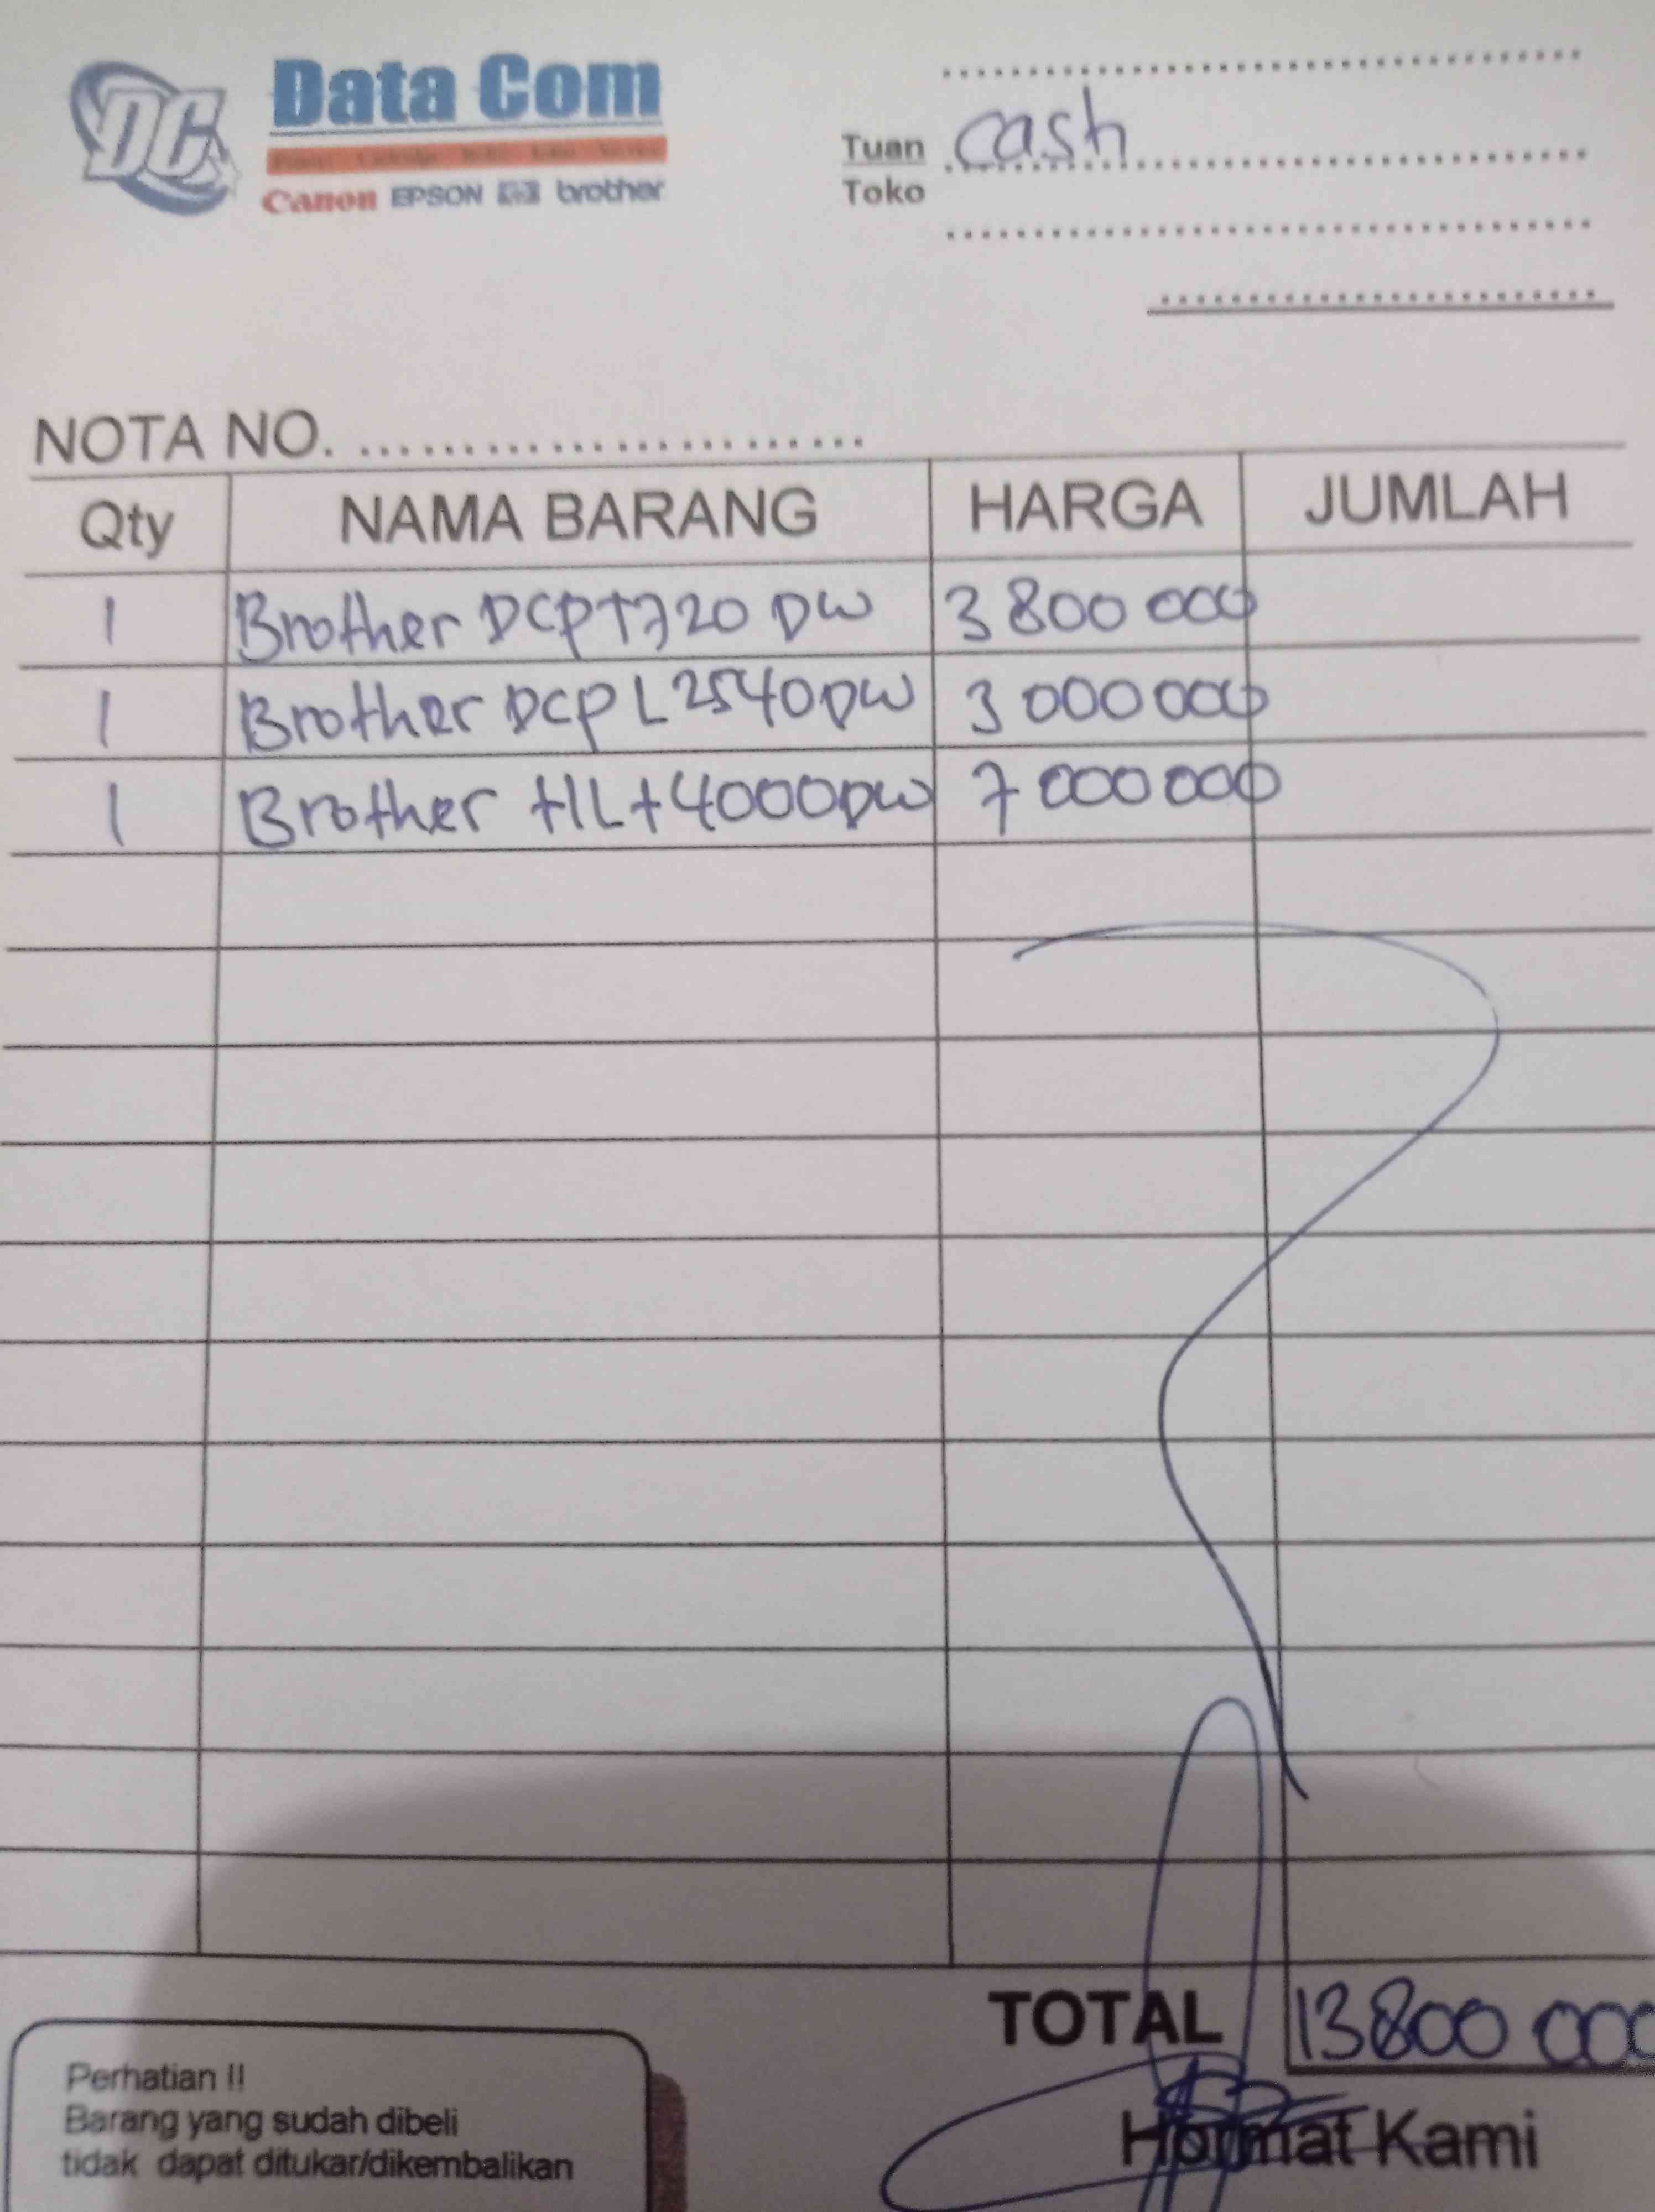 DC
Data Com
Canon EPSON hp brother
Tuan cash
Toko
NOTA NO.
Qty NAMA BARANG HARGA JUMLAH
1 Brother DCPT720 DW 3 800 000
1 Brother DCP L 2540DW 3 000 000
1 Brother HLT4000DW 7 000 000
TOTAL 13800 000
Perhatian !!
Barang yang sudah dibeli
tidak dapat ditukar/dikembalikan
Hormat Kami